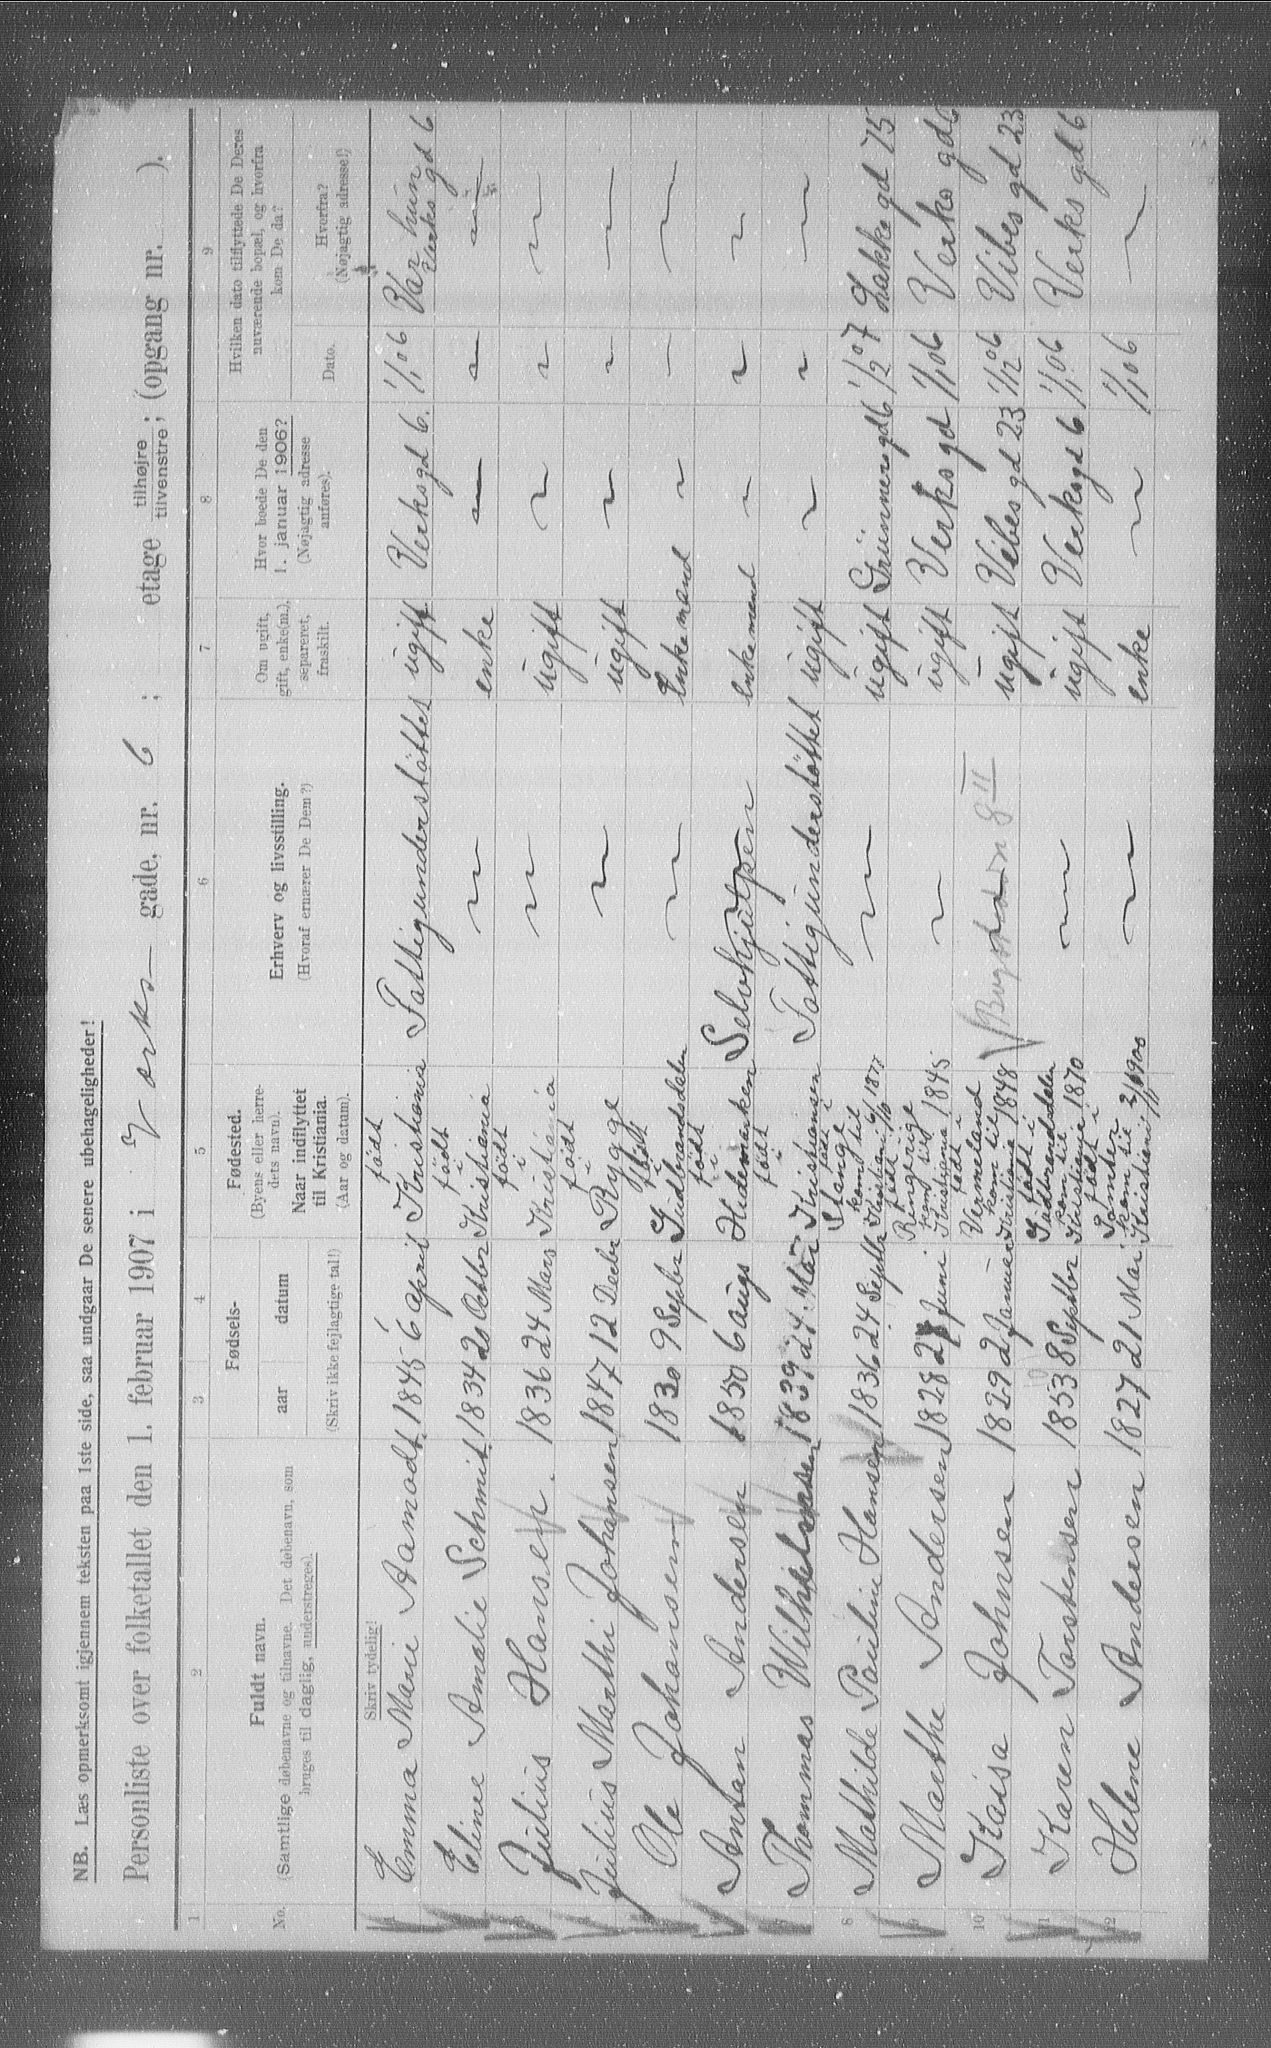 NB. Læs opmerksomt igjennem teksten paa 1ste side, saa undgaar De senere ubehageligheder!
Personliste over folketallet den 1. februar 1907 i Verks- gade, nr. 6 ; etage tilhøjre / tilvenstre ; (opgang nr. ).
1 2 3 4 5 6 7 8 9
No.
Fuldt navn.
(Samtlige døbenavne og tilnavne. Det døbenavn, som
bruges til daglig, understreges).
Fødsels-
aar datum
(Skriv ikke fejlagtige tal!)
Fødested.
(Byens eller herre-
dets navn).
Naar indflyttet
til Kristiania.
(Aar og datum).
Erhverv og livsstilling.
(Hvoraf ernærer De Dem?)
Om ugift,
gift, enke(m.),
separeret,
fraskilt.
Hvor boede De den
1. januar 1906?
(Nøjagtig adresse
anføres).
Hvilken dato tilflyttede De Deres
nuværende bopæl, og hvorfra
kom De da?
Dato.
Hvorfra?
(Nøjagtig adresse!)
Skriv tydelig!
1 Emma Marie Aamodt 1845 6 april født Kristiania Fattigunderstøttet ugift Verksgd 6. 1/1 06 Var hun Verksgd 6
2 Eline Amalie Schmit 1834 20 Octbr født i Kristiania ~ enke ~ ~ ~
3 Julius Hansen 1836 24 Mars født i Kristiania ~ ugift ~ ~ ~
4 Julius Marthi Johansen 1847 12 Decbr født i Rygge ~ ugift ~ ~ ~
5 Ole Johansen 1830 9 Septbr født i Gudbrandsdalen ~ Enkemand ~ ~ ~
6 Antan Andersen 1850 6 augs født i Hedemarken Selvhjulpen Enkemand ~ ~ ~
7 Thommas Wilhelmsen 1839 24 Mai født i Kristiansen Fattigunderstøttet ugift ~ ~ ~
8 Mathilde Pauline Hansen 1836 24 Septbr født i Stange kom til Kristiani 6/10 1877 ~ ugift Grünnersgd 6 1/2 07 Lakkegd 75
9 Marthe Andersen 1828 28 Juni født i Ringerige kom til Kristiania 1845 ~ ugift Verksgd 1/1 06 Verksgd 6
10 Kaisa Johnsen 1829 2 Januar født i Vermeland kom til Kristiania 1848 ugift Vibesgd 23 1/12 06 Vibesgd 23
11 Karen Torstensen 1853 8 Septbr født i Gudbrandsdalen kom til Kristiania 1870 ~ ugift Verksgd 6 1/1 06 Verksgd 6
12 Helene Andersen 1827 21 Mai født i kom til Kristiani 1900 ~ enke ~ 1/1 06 ~